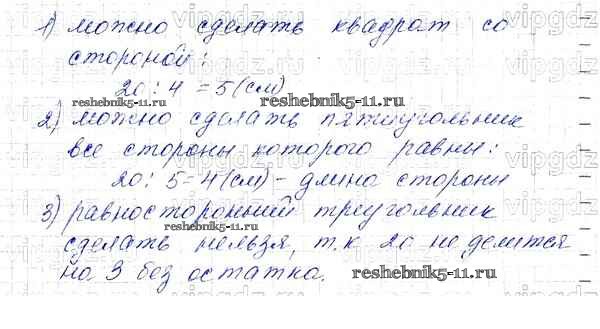 1) можно сделать квадрат со
стороной:
20 : 4 = 5 (см)
reshebnik5-11.ru
reshebnik5-11.ru
2) можно сделать пятиугольник
все стороны которого равны:
20 : 5 = 4 (см) - длина стороны
3) равносторонний треугольник
reshebnik5-11.ru
сделать нельзя, т.к 20 не делится
на 3 без остатка.
reshebnik5-11.ru
vipgdz